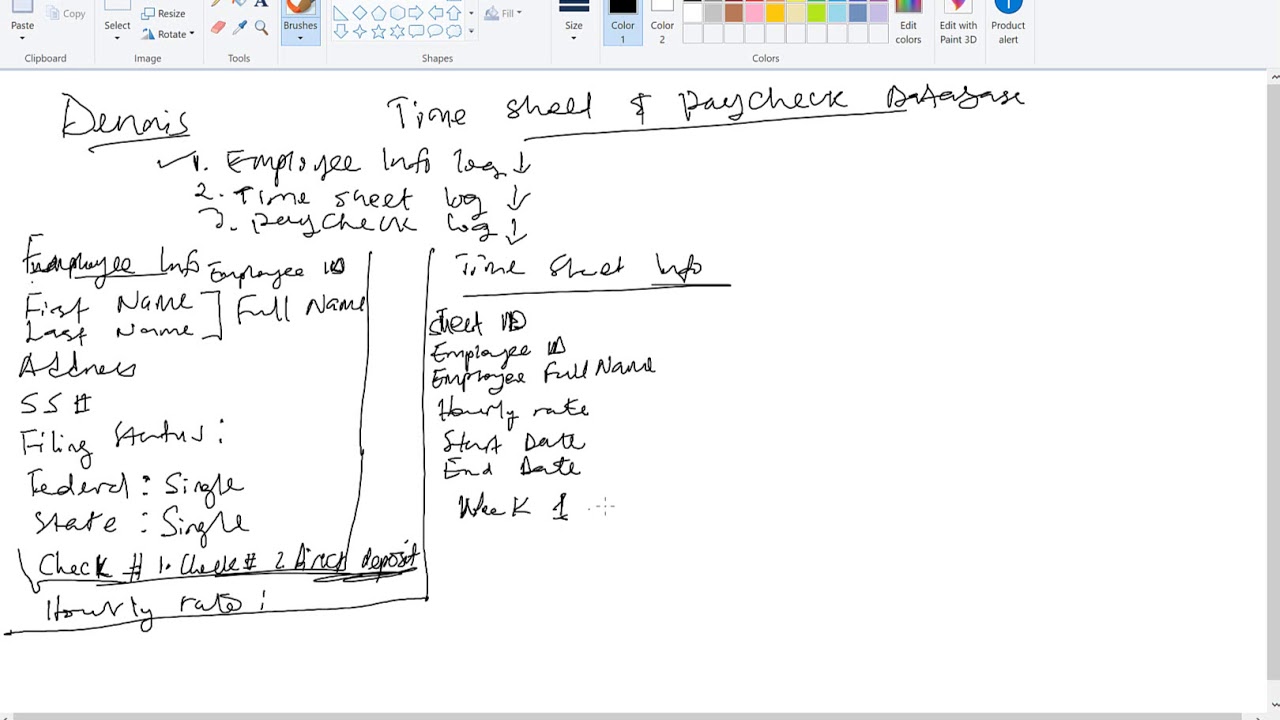 Paste
Copy
Select
Resize
Rotate
Brushes
Fill
Size
Color 1
Color 2
Edit colors
Edit with Paint 3D
Product alert
Clipboard
Image
Tools
Shapes
Colors
Dennis
Time sheet & paycheck Database
1. Employee Info log
2. Time sheet log
3. paycheck log
Employee Info Employee ID
First Name
Last Name
Full Name
Address
SS#
Filing Status:
Federal: Single
State: Single
Check # 1. Check # 2 Direct deposit
Hourly rate:
Time Sheet Info
Sheet ID
Employee ID
Employee Full Name
Hourly rate
Start Date
End Date
Week 1